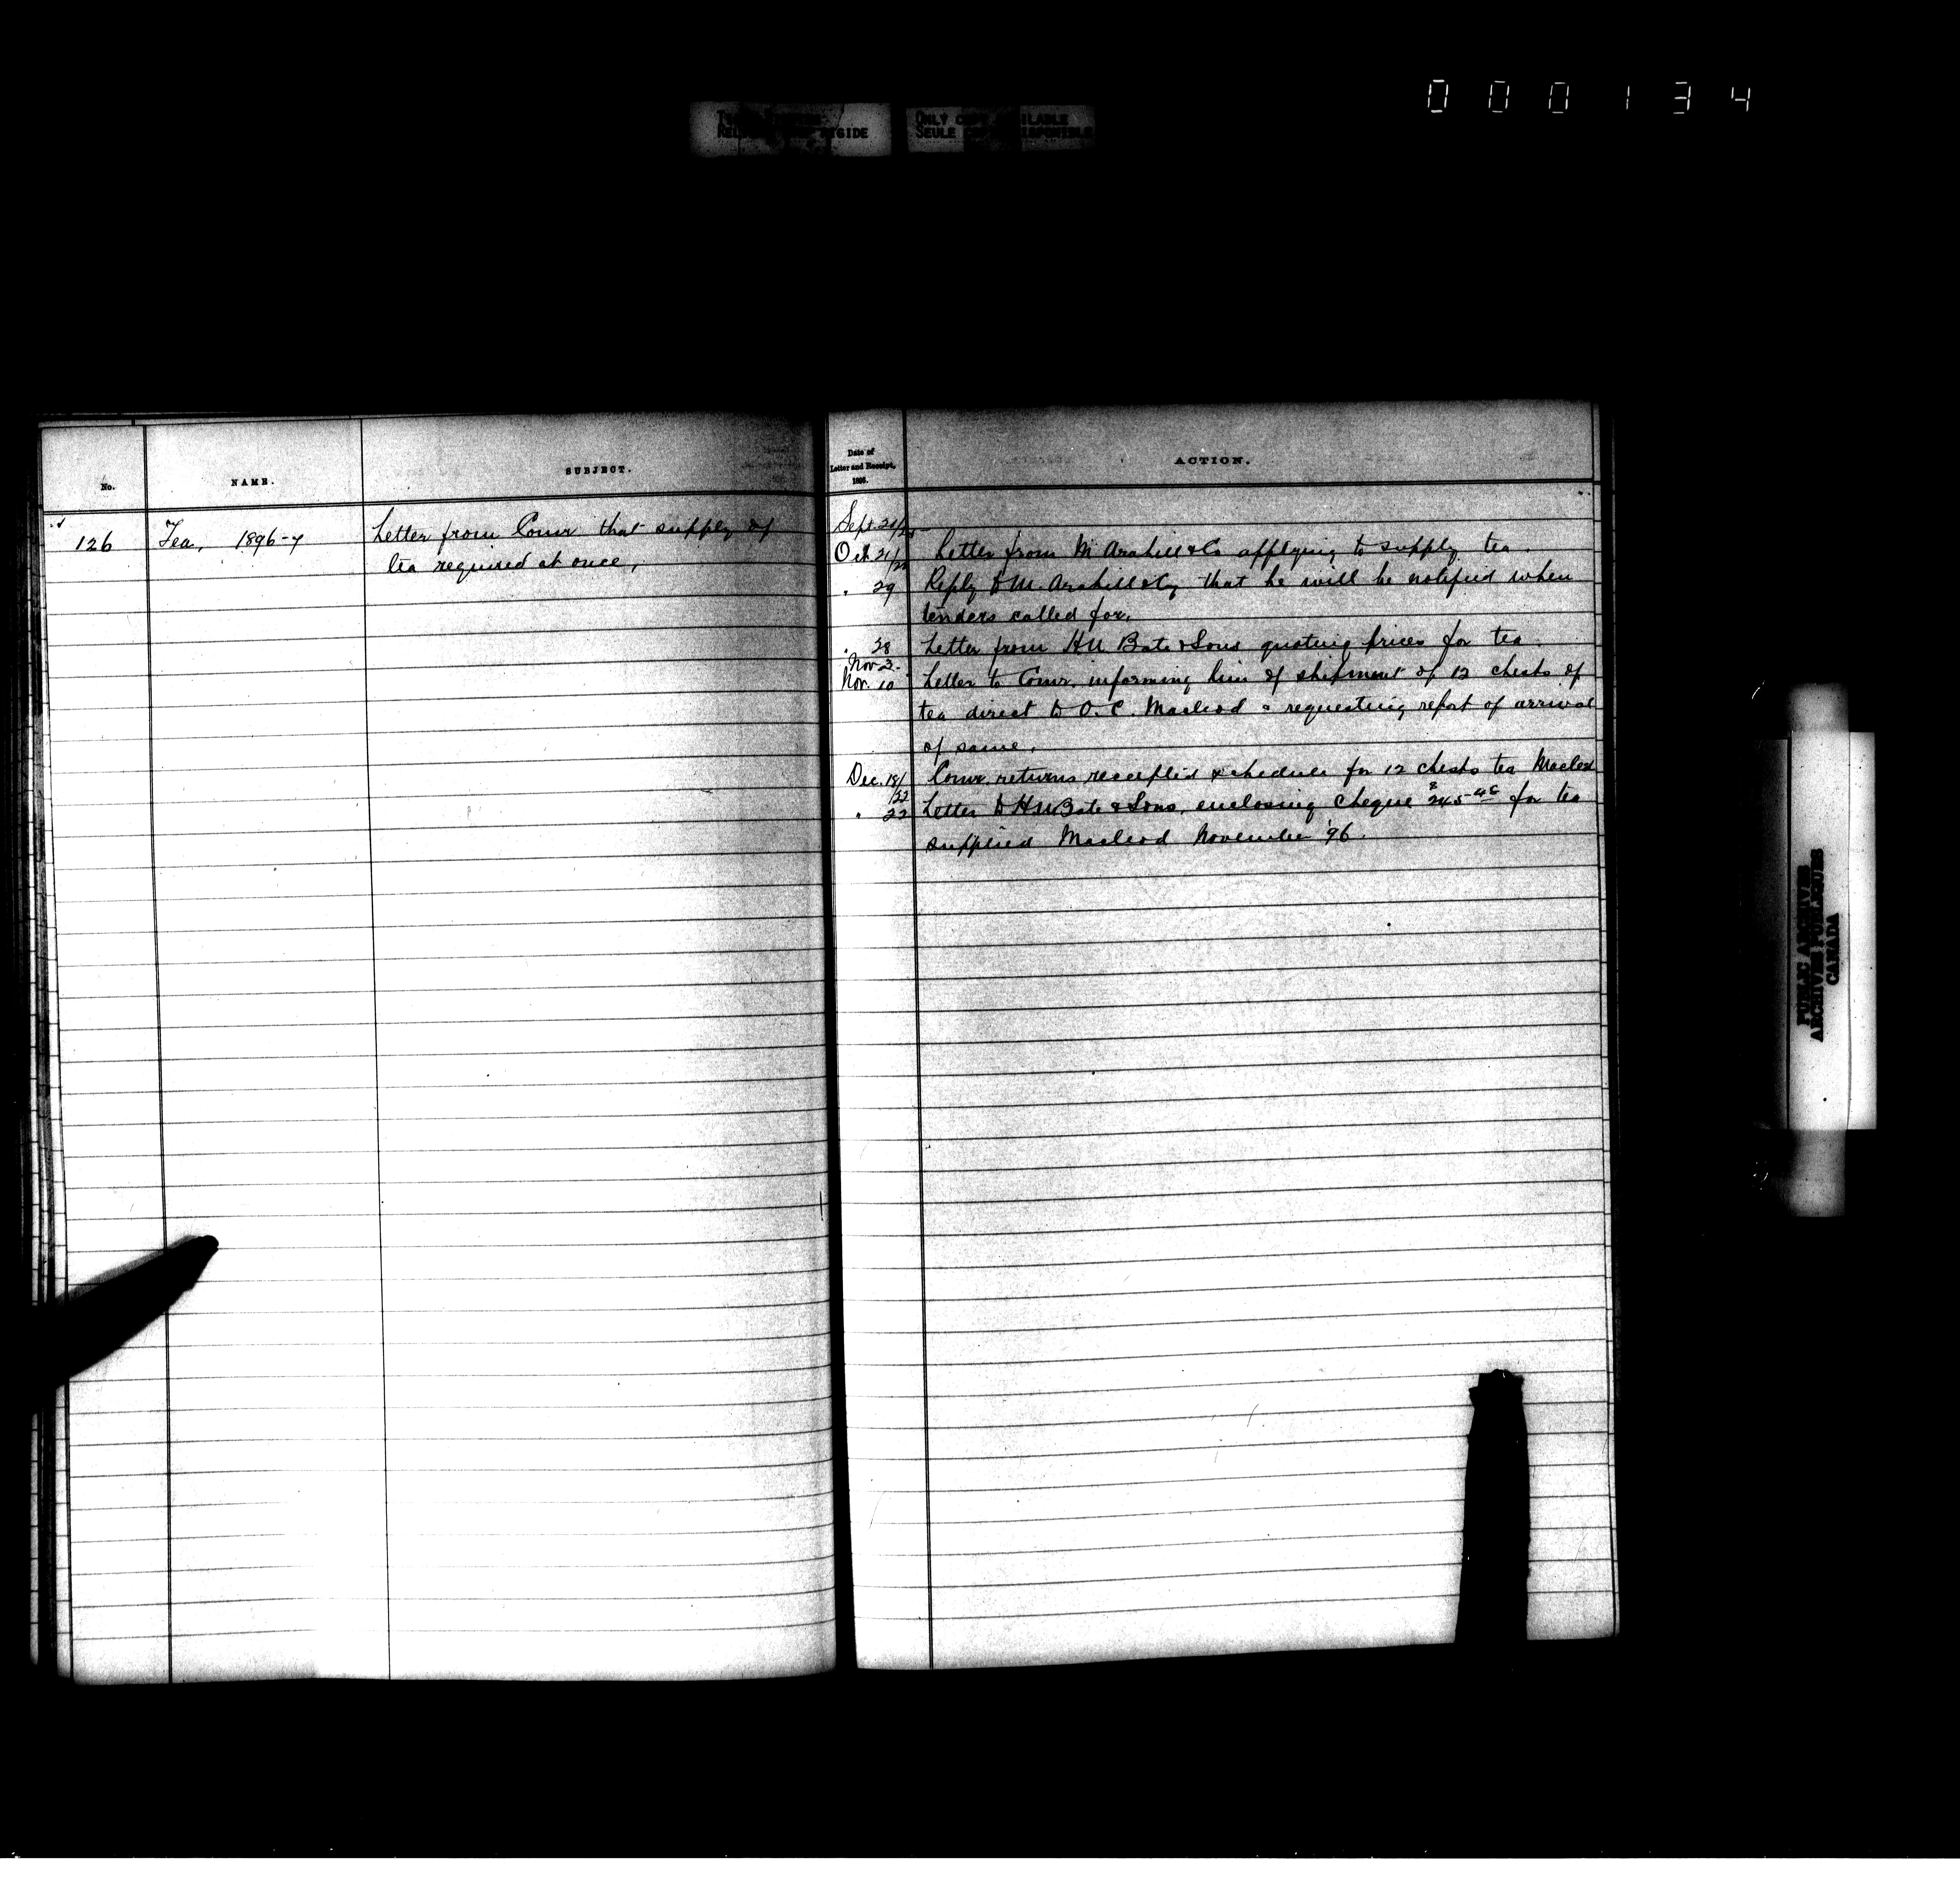 000134
TIGHT
RELIURE RIGIDE
ONLY COPY AVAILABLE
SEULE COPIE DISPONIBLE
No.
NAME.
SUBJECT.
Date of
Letter and Receipt,
ACTION.
126 Tea, 1896-7 Letter from Comr that supply of
tea required at once,
Sept. 21/25
Oct 21/ Letter from M. Arahill & Co applying to supply tea.
" 29 Reply to M. Arahill & Cy that he will be notified when
tenders called for.
" 28 Letter from H N Bate & Sons quoting prices for tea.
Nov 2.
Nov. 10 Letter to Comr. informing him of shipment of 12 chests of
tea direct to O. C. Macleod & requesting report of arrival
of same.
Dec. 18/22 Comr. returns receipted schedule for 12 chests tea Macleod
" 22 Letter to H.N. Bate & Sons, enclosing cheque $245.46 for tea
supplied Macleod November '96.
PUBLIC ARCHIVES
ARCHIVES PUBLIQUES
CANADA